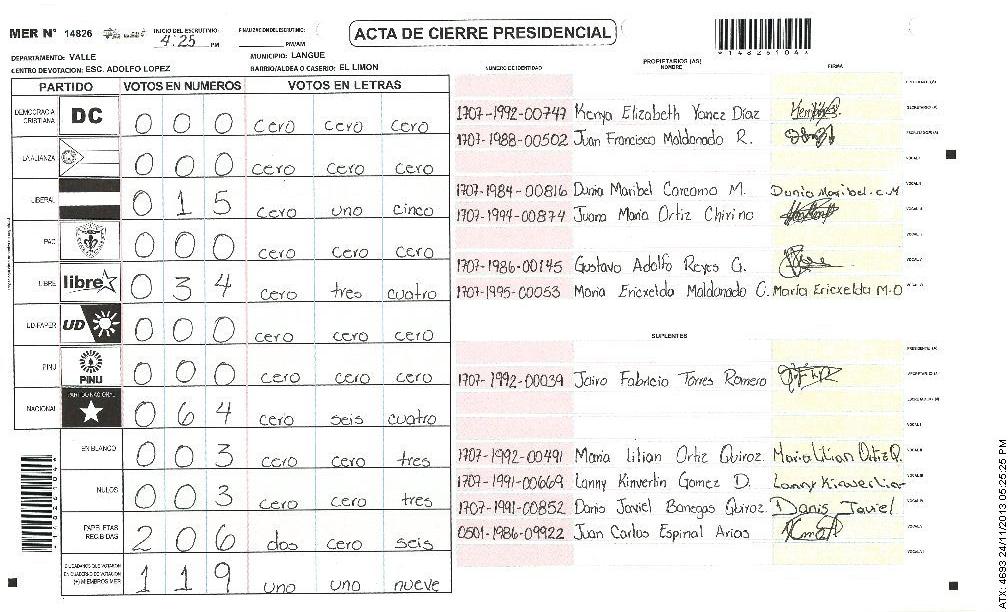 MER N° 14826
INICIO DEL ESCRUTINIO: 4:25 PM
FINALIZACION DEL ESCRUTINIO: PM/AM
ACTA DE CIERRE PRESIDENCIAL
DEPARTAMENTO: VALLE
MUNICIPIO: LANGUE
CENTRO DE VOTACION: ESC. ADOLFO LOPEZ
BARRIO/ALDEA O CASERIO: EL LIMON
PARTIDO VOTOS EN NUMEROS VOTOS EN LETRAS
DEMOCRACIA CRISTIANA DC 0 0 0 cero cero cero
LA ALIANZA 0 0 0 cero cero cero
LIBERAL 0 1 5 cero uno cinco
PAC 0 0 0 cero cero cero
LIBRE libre 0 3 4 cero tres cuatro
UD-FAPER UD 0 0 0 cero cero cero
PINU PINU 0 0 0 cero cero cero
NACIONAL PARTIDO NACIONAL 0 6 4 cero seis cuatro
EN BLANCO 0 0 3 cero cero tres
NULOS 0 0 3 cero cero tres
PAPELETAS RECIBIDAS 2 0 6 dos cero seis
CIUDADANOS QUE VOTARON EN CUADERNO DE VOTACION (+) MIEMBROS MER 1 1 9 uno uno nueve
NUMERO DE IDENTIDAD PROPIETARIOS (AS) NOMBRE FIRMA
1707-1992-00747 Kenya Elizabeth Yanez Diaz
1707-1988-00502 Juan Francisco Maldonado R.
1707-1984-00816 Dunia Maribel Carcamo M. Dunia Maribel.C.M
1707-1994-00874 Juana Maria Ortiz Chirino
1707-1986-00145 Gustavo Adolfo Reyes G.
1707-1995-00053 Maria Ericxelda Maldonado O. Maria Ericxelda M.O
SUPLENTES
1707-1992-00039 Jairo Fabricio Torres Romero
1707-1992-00491 Maria Lilian Ortiz Quiroz. Maria Lilian Ortiz Q.
1707-1991-00669 Lanny Kinverlin Gomez D. Lanny Kinverlin
1707-1991-00852 Danis Javiel Banegas Quiroz. Danis Javiel
0501-1986-09922 Juan Carlos Espinal Arias
*14826104*
ATX: 4693 24/11/2013 05:25:25 PM